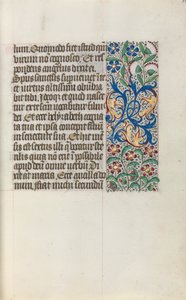 lum. Quomodo fiet istud qm̄
virum nō cognosco. Et res
pondens angelus dixit ei.
Spūs sanctus superueniet in te
et virtus altissimi obumbra
bit tibi. Ideoq et quod nasce
tur ex te sanctum vocabitur filius
dei. Et ecce helyzabeth cogna
ta tua et ipsa concepit filiū
in senectute sua. Et hic men
sis est sextus illi q̄ vocatur ste
rilis quia nō erit īpossibile
apud deū omne verbū. Di
xit aūt maria. Ecce ancilla do
mini fiat michi secundū